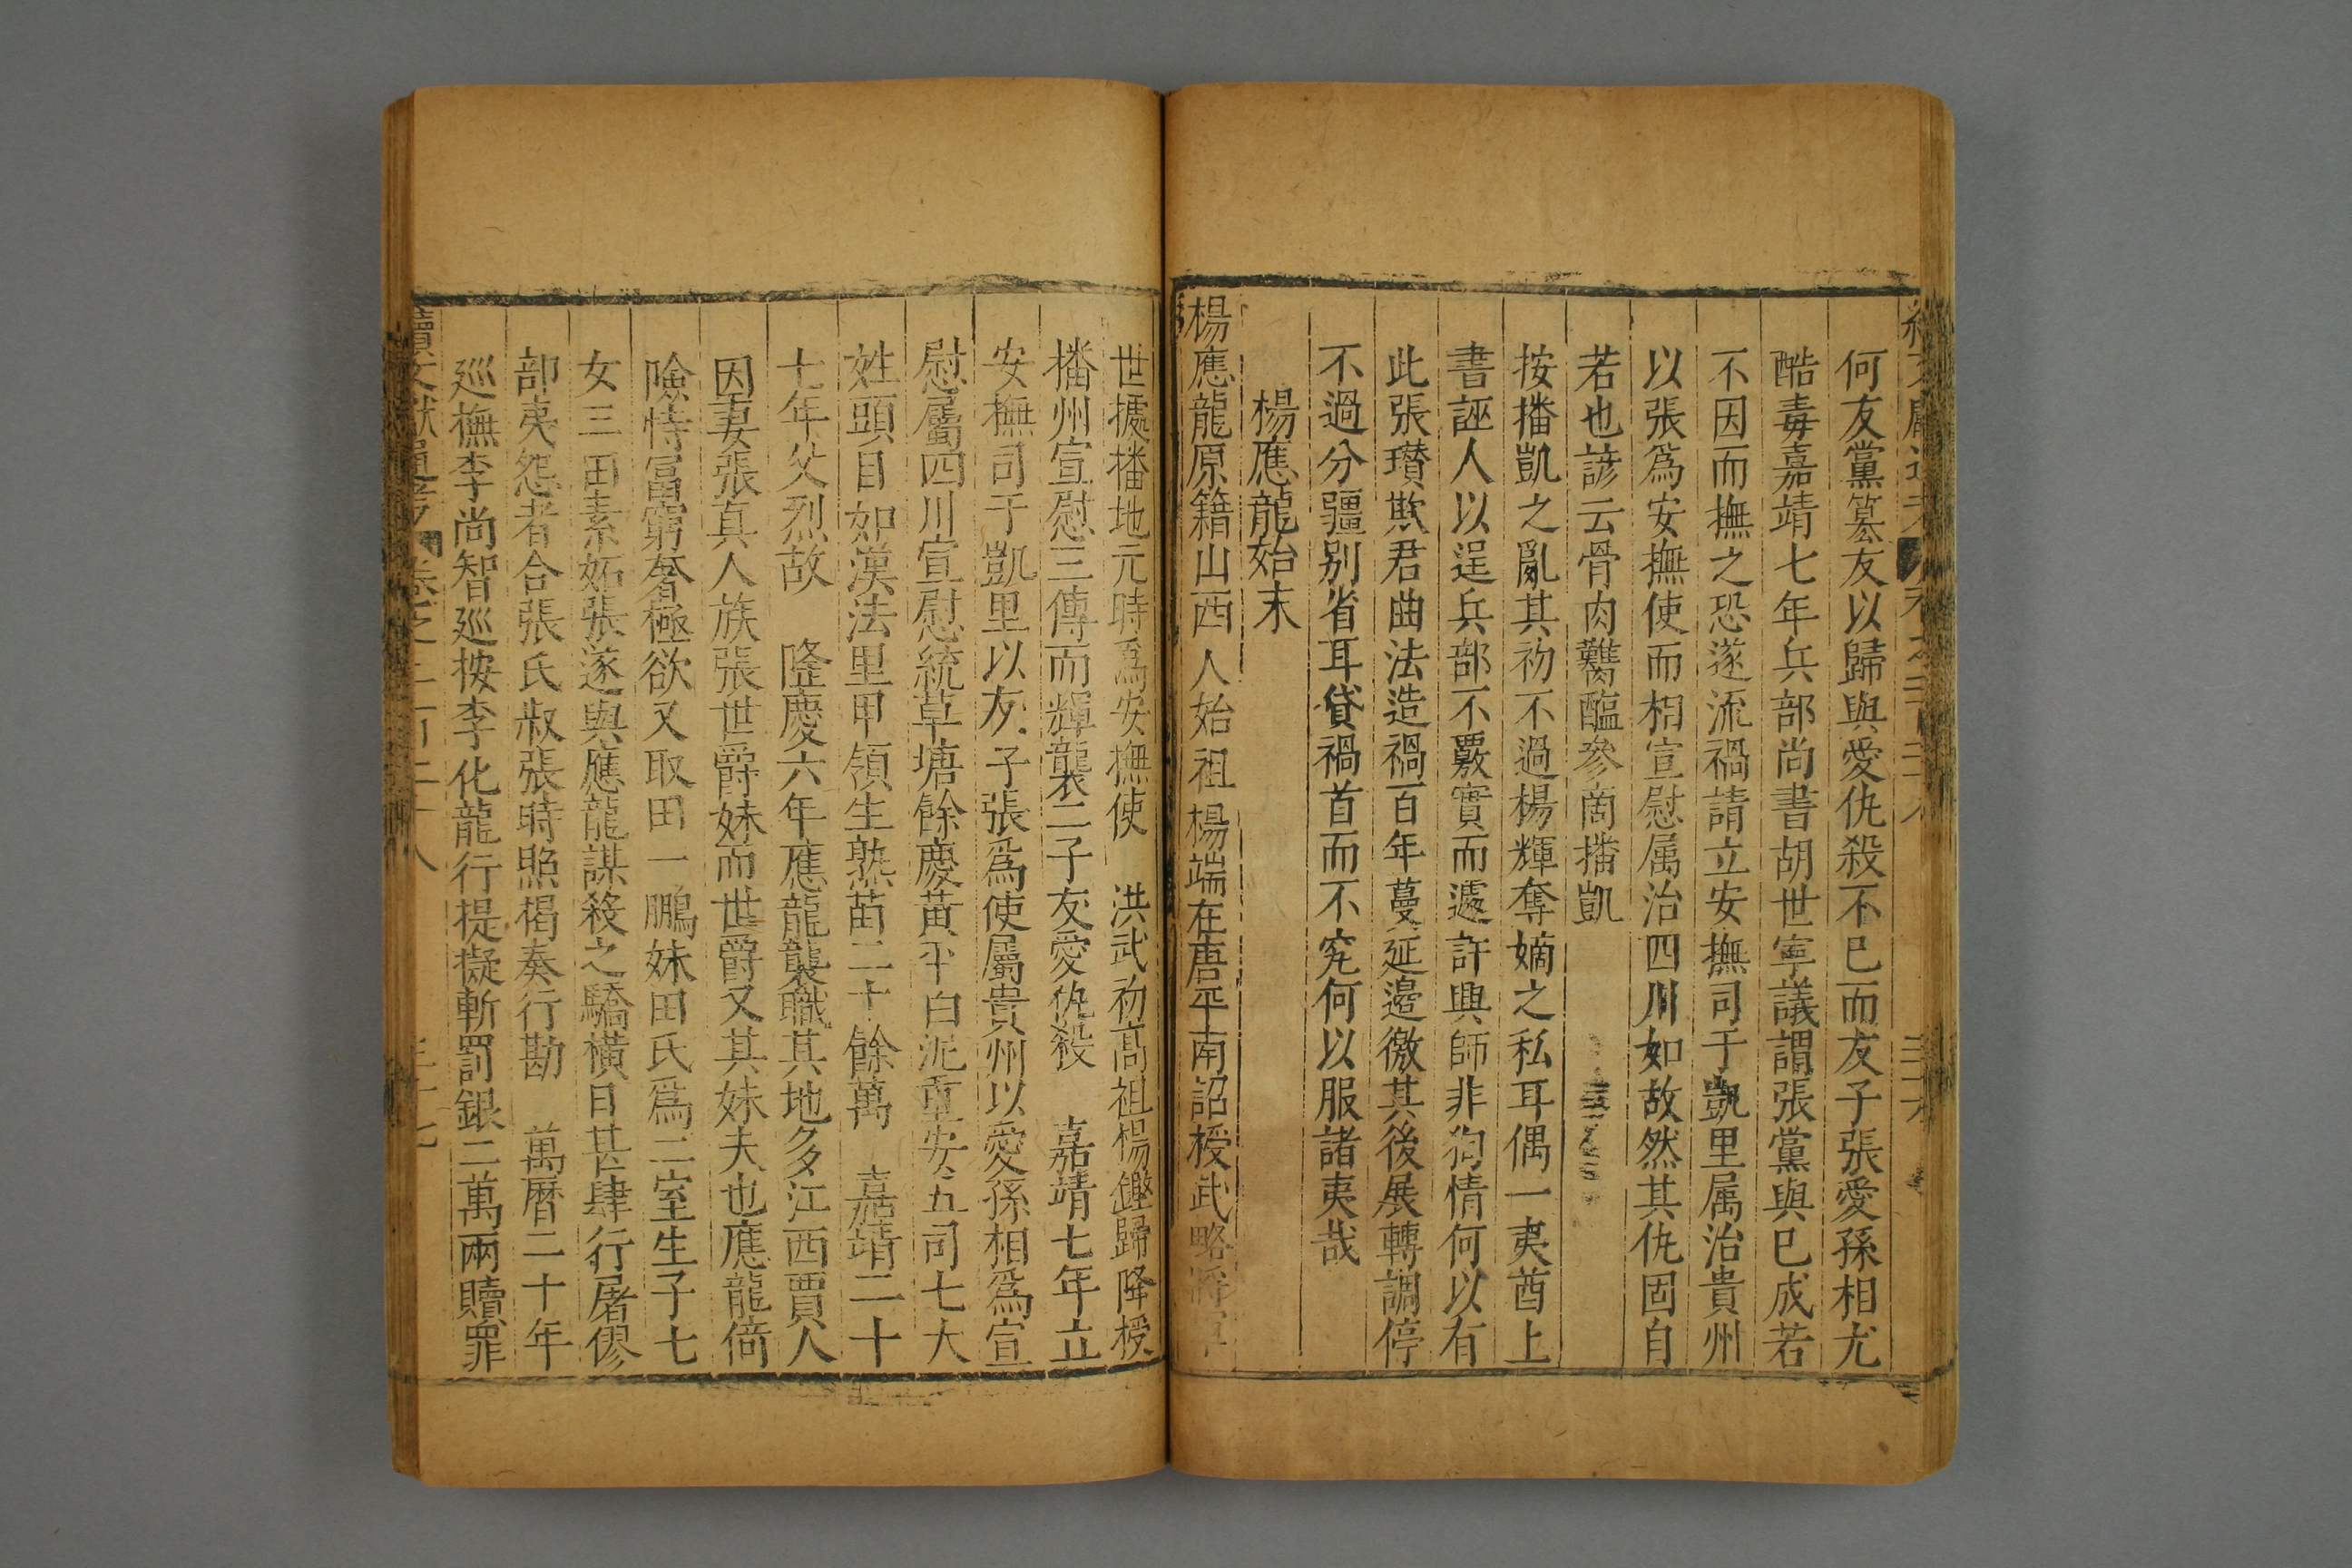 何友黨篡友以歸與愛仇殺不已而友子張愛孫相尤
酷毒嘉靖七年兵部尚書胡世寧議謂張黨與已成若
不因而撫之恐遂流禍請立安撫司于凱里属治貴州
以張爲安撫使而相宣慰属治四川如故然其仇固自
若也諺云骨肉難醢參啇播凱
按播凱之亂其初不過楊輝奪嫡之私耳偶一夷酋上
書誣人以逞兵部不覈實而遽許興師非狥情何以有
此張瓚欺君曲法造禍百年蔓延邊徼其後展轉調停
不過分疆别省耳貸禍首而不究何以服諸夷哉
楊應龍始末
楊應龍原籍山西人始祖楊端在唐平南詔授武略將軍
世據播地元時爲安撫使　洪武初高祖楊鏗歸降授
播州宣慰三傳而輝襲二子友愛仇殺　嘉靖七年立
安撫司于凱里以友子張爲使屬貴州以愛孫相爲宣
慰屬四川宣慰統草塘餘慶黃平白泥重安五司七大
姓頭目如漢法里甲領生熟苗二十餘萬　嘉靖二十
七年父烈故　隆慶六年應龍襲職其地多江西賈人
因妻張真人族張世爵妹而世爵又其妹夫也應龍倚
險恃富窮奢極欲又取田一鵬妹田氏爲二室生子七
女三田素妬張遂與應龍謀殺之驕橫日甚肆行屠僇
部夷怨者合張氏叔張時照楊奏行勘　萬曆二十年
巡撫李尚智巡按李化龍行提擬斬罰銀二萬兩贖罪
續文獻通考　卷之二百三十八　三十七